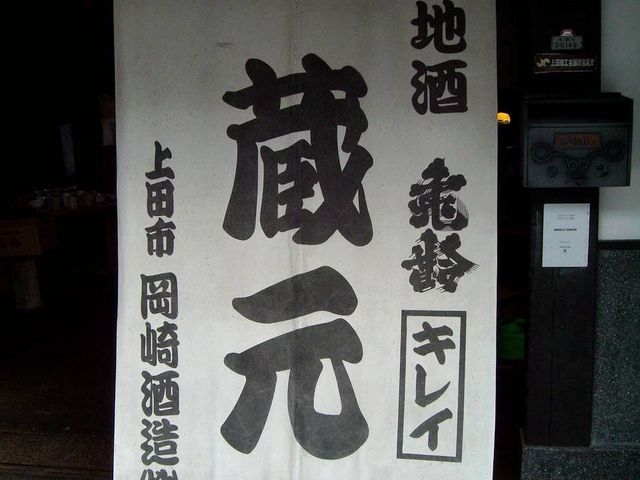 地酒 亀齢 キレイ
蔵元
上田市 岡崎酒造